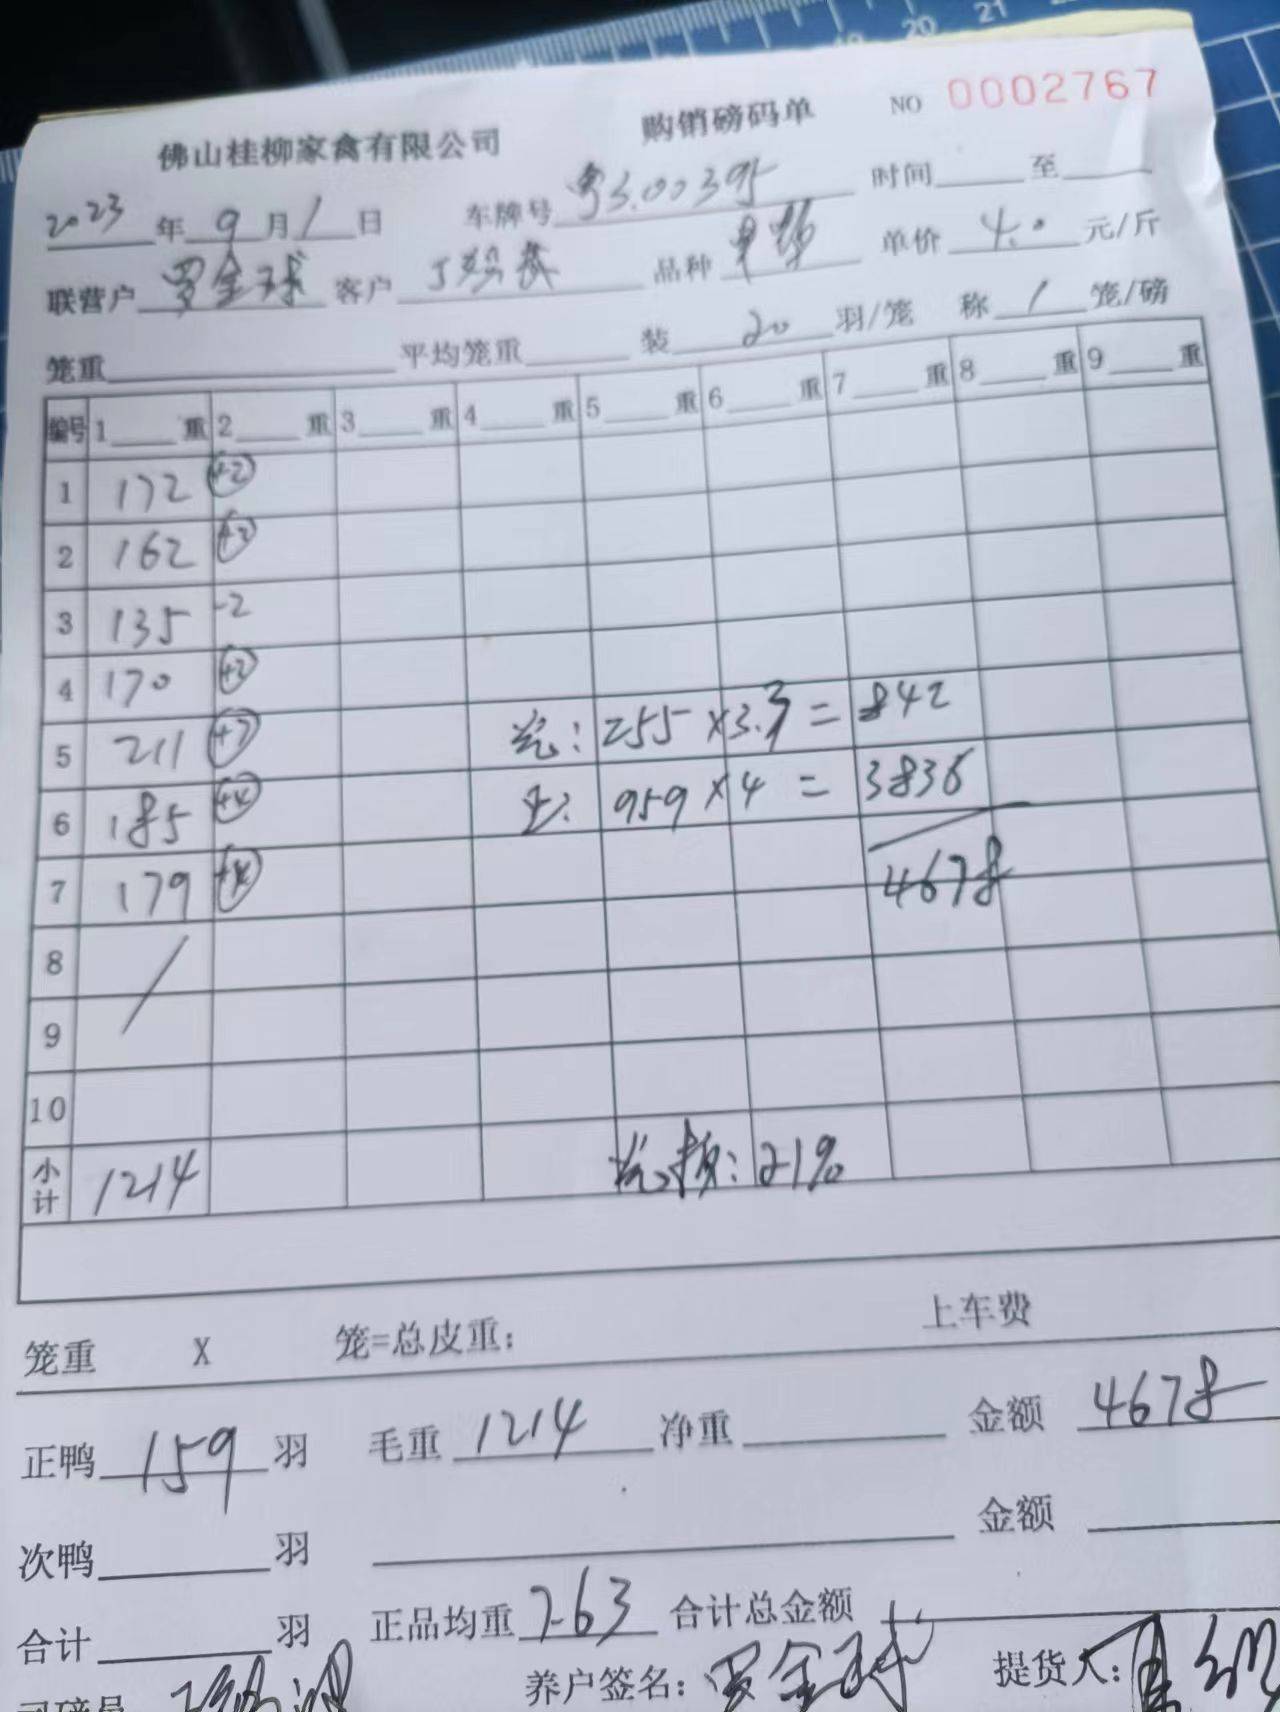 20 21
佛山桂柳家禽有限公司 购销磅码单 NO 0002767
2023年9月1日 车牌号 粤S.00395 时间 至
联营户 罗金球 客户 品种 单价 4.0 元/斤
笼重 平均笼重 装 20 羽/笼 称 1 笼/磅
编号 1 重 2 重 3 重 4 重 5 重 6 重 7 重 8 重 9 重
1 172 +2
2 162 +2
3 135 -2
4 170 +2
5 211 +7
255×3.3=842
6 185 +4
959×4=3836
7 179 +4
4678
8
9
10
小计 1214 21%
笼重 X 笼=总皮重: 上车费
正鸭 159 羽 毛重 1214 净重 金额 4678
次鸭 羽 金额
合计 羽 正品均重 7.63 合计总金额
司磅员 养户签名: 罗金球 提货人: